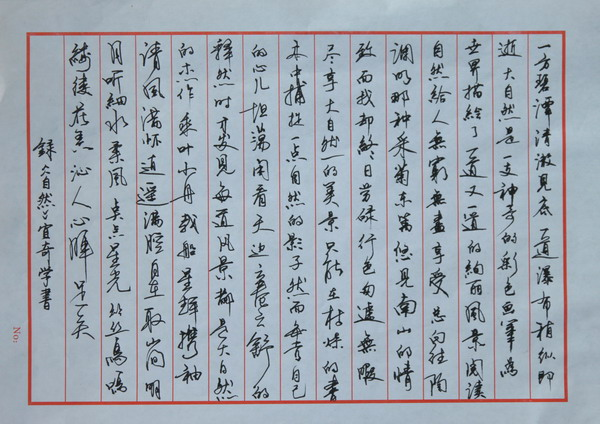 一方碧潭清澈見底一道瀑布稍纵即
逝大自然是一支神奇的彩色画筆為
世界描绘了一道又一道的绚丽風景阅读
自然给人無窮無盡享受总向往陶
渊明那种采菊东篱悠見南山的情
致而我却终日劳碌行色匆遽無暇
尽享大自然的美景只能在枯燥的書
本中捕捉一点自然的影子然而每当自己
的心儿坦荡闲看天边云卷云舒的
释然时才发見每道风景都是大自然
的杰作乘叶小舟载船星辉携袖
清風满怀逍遥满腔自在取山间明
月听細水柔風点点星光丝丝鸟鸣
花香沁人心脾
录大自然宜奇学書
No: